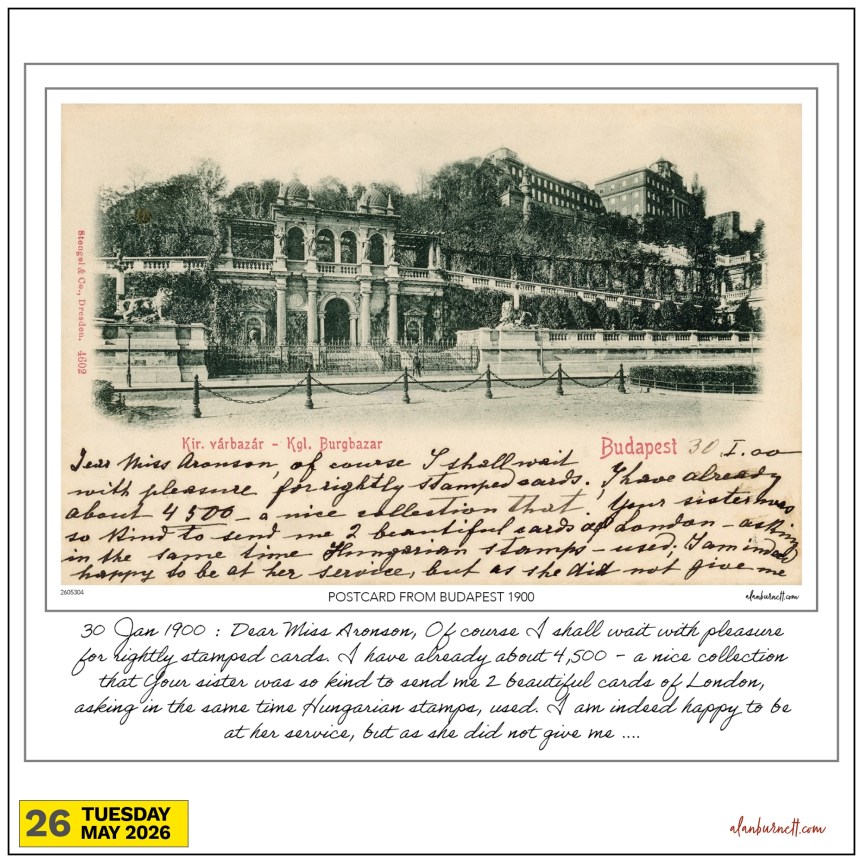 Stengel & Co., Dresden. 4602
Kir. várbazár - Kgl. Burgbazar
Budapest 30.I.00
Dear Miss Aronson, of course I shall wait
with pleasure for rightly stamped cards. I have already
about 4500 - a nice collection that. Your sister was
so kind to send me 2 beautiful cards of London - asking
in the same time Hungarian stamps - used. I am indeed
happy to be at her service, but as she did not give me
2605304
POSTCARD FROM BUDAPEST 1900
alanburnett.com
30 Jan 1900 : Dear Miss Aronson, Of course I shall wait with pleasure
for rightly stamped cards. I have already about 4,500 - a nice collection
that Your sister was so kind to send me 2 beautiful cards of London,
asking in the same time Hungarian stamps, used. I am indeed happy to be
at her service, but as she did not give me ....
26 TUESDAY
MAY 2026
alanburnett.com